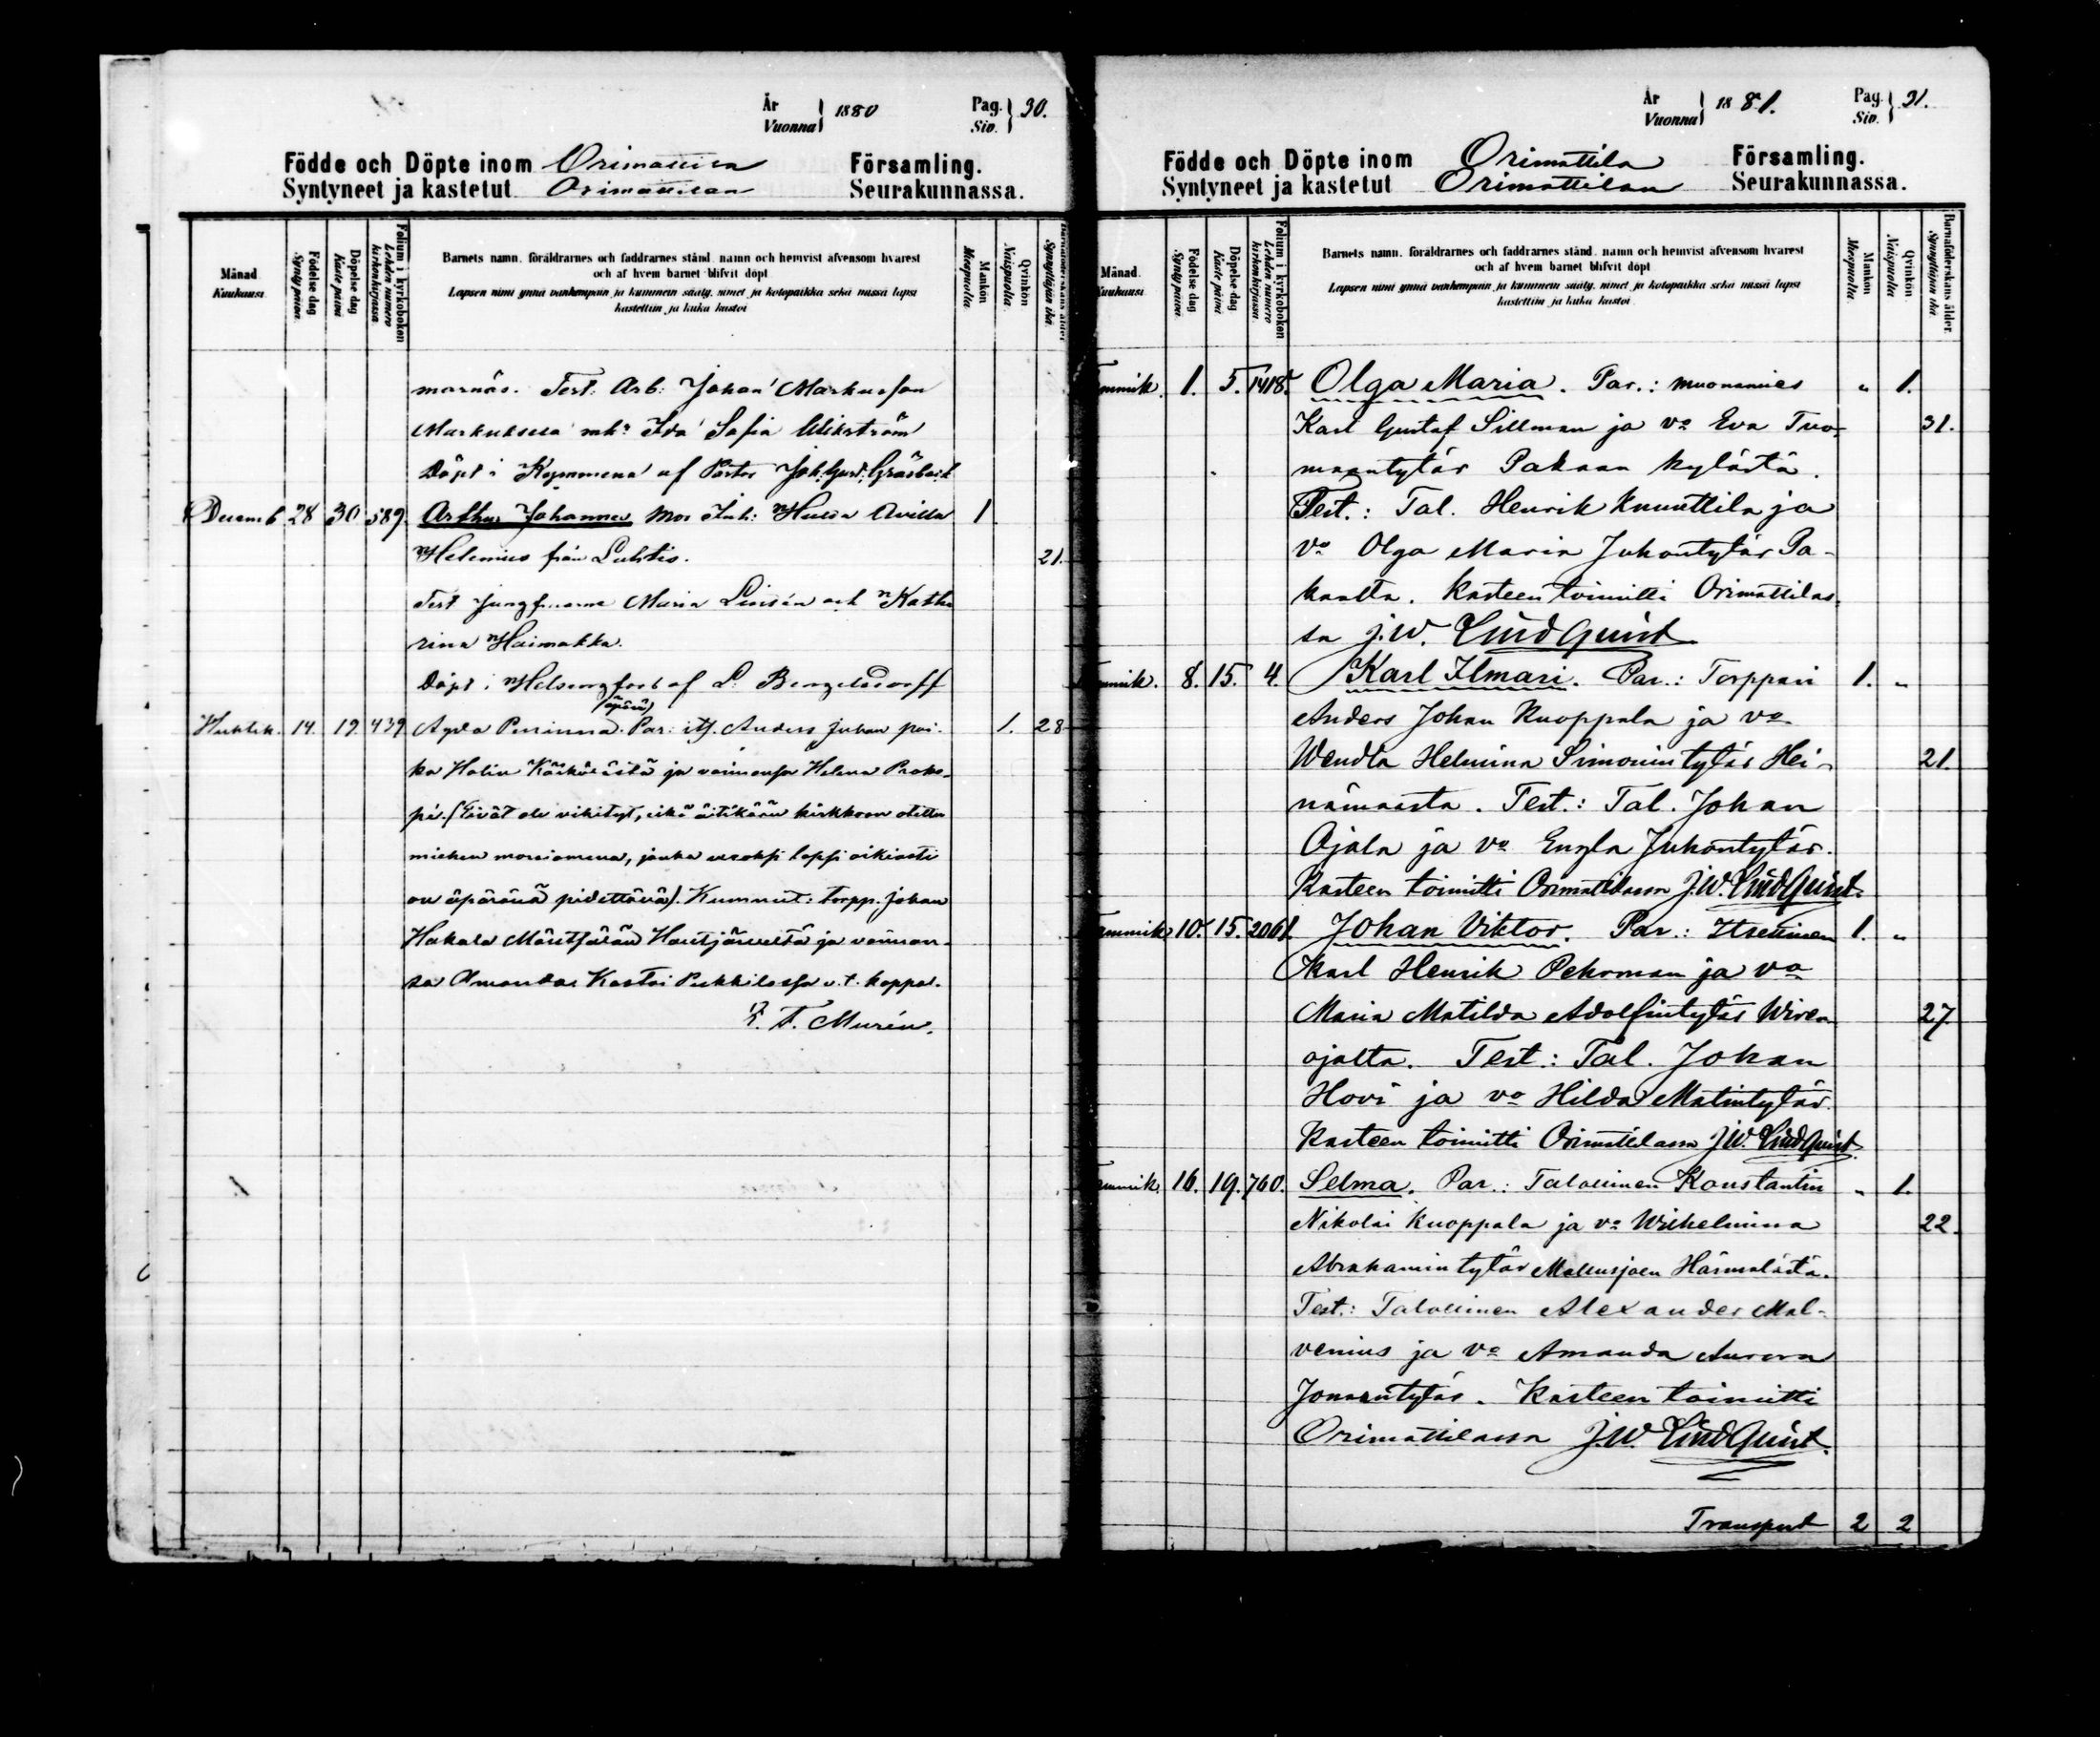 År
Vuonna } 1880
Pag.
Siv. } 30.
Födde och Döpte inom Orimattila Församling.
Syntyneet ja kastetut Orimattilan Seurakunnassa.
Månad.
Kuukausi.
Födelse dag
Synty päivä.
Döpelse dag
Kaste päivä
Folium i kyrkoboken
Lehden numero kirkonkirjassa
Barnets namn, föräldrarnes och faddrarnes stånd, namn och hemvist äfvensom hvarest
och af hvem barnet blifvit döpt
Lapsen nimi ynnä vanhempain ja kummein sääty, nimet ja kotopaikka sekä missä lapsi
kastettiin ja kuka kastoi
Mankön
Miespuolta.
Qvinkön
Naispuolta
Barnaföderskans ålder
Synnyttäjän ikä.
marnäs. Test: Arb: Johan Markusson
Markuksela mh: Ida Sofia Wikström
Döpt i Kymmene af Pastor Joh: Gust:
Decemb 28 30 589. Arthur Johannes Mor Inh: Hulda Avilla 1
Helenius från Luhtis. 21.
Test Jungfrurne Maria Linsén och Katha
rina Haimakka.
Döpt i Helsingfors af L. Bengelsdorff
(äpärä)
Huhtik. 14. 19. 439 Agda Pariinna. Par: itf. Anders Juhan poi- 1. 28
ka Holin Käikälästä ja vaimonsa Helena
pi. (Eivät ole vihityt, eikä äitikään kirkkoon otettu
miehen morsiamena, jonka vuoksi lapsi oikiasti
on äpäränä pidettävä). Kummit: torpp. Johan
Hakala Mäntsälän Hautjärveltä ja vaimon-
sa Amanda. Kastoi Pukkilassa v. t. kappal.
F. Murén.
År
Vuonna } 1881.
Pag.
Siv. } 31.
Födde och Döpte inom Orimattila Församling.
Syntyneet ja kastetut Orimattilan Seurakunnassa.
Månad.
Kuukausi.
Födelse dag
Synty päivä.
Döpelse dag
Kaste päivä
Folium i kyrkoboken
Lehden numero kirkonkirjassa.
Barnets namn, föräldrarnes och faddrarnes stånd, namn och hemvist äfvensom hvarest
och af hvem barnet blifvit döpt
Lapsen nimi ynnä vanhempain ja kummein sääty, nimet ja kotopaikka sekä missä lapsi
kastettiin ja kuka kastoi
Mankön
Miespuolta.
Qvinkön
Naispuolta
Barnaföderskans ålder.
Synnyttäjän ikä.
Tammik. 1. 5. 1418. Olga Maria. Par.: muonamies " 1.
Karl Gustaf Sillman ja vo Eva Tuo- 31.
maantytär Pakaan kylästä.
Test.: Tal. Henrik Knuuttila ja
vo Olga Maria Juhontytär Pa-
kaalta. Kasteen toimitti Orimattilas-
sa J.W. Lindquist
Tammik. 8. 15. 4. Karl Ilmari. Par.: Torppari 1. "
Anders Johan Kuoppala ja vo
Wendla Helmina Simonintytär Hei- 21.
nämaasta. Test.: Tal. Johan
Ajala ja vo Engla Juhontytär.
Kasteen toimitti Orimattilassa J.W. Lindquist.
Tammik 10. 15. 2061. Johan Viktor. Par.: Itsellinen 1. "
Karl Henrik Pehrman ja vo
Maria Matilda Adolfintytär Wiren- 27.
ojalta. Test.: Tal. Johan
Hovi ja vo Hilda Matintytär.
Kasteen toimitti Orimattilassa J.W. Lindquist.
Tammik. 16. 19. 760. Selma. Par.: Talollinen Konstantin " 1.
Nikolai Kuoppala ja vo Wilhelmina 22.
Abrahamintytär Mallusjoen Härmälästä.
Test.: Talollinen Alexander Mal-
venius ja vo Amanda Aurora
Jonaantytär. Kasteen toimitti
Orimattilassa J.W. Lindquist.
Transport 2 2